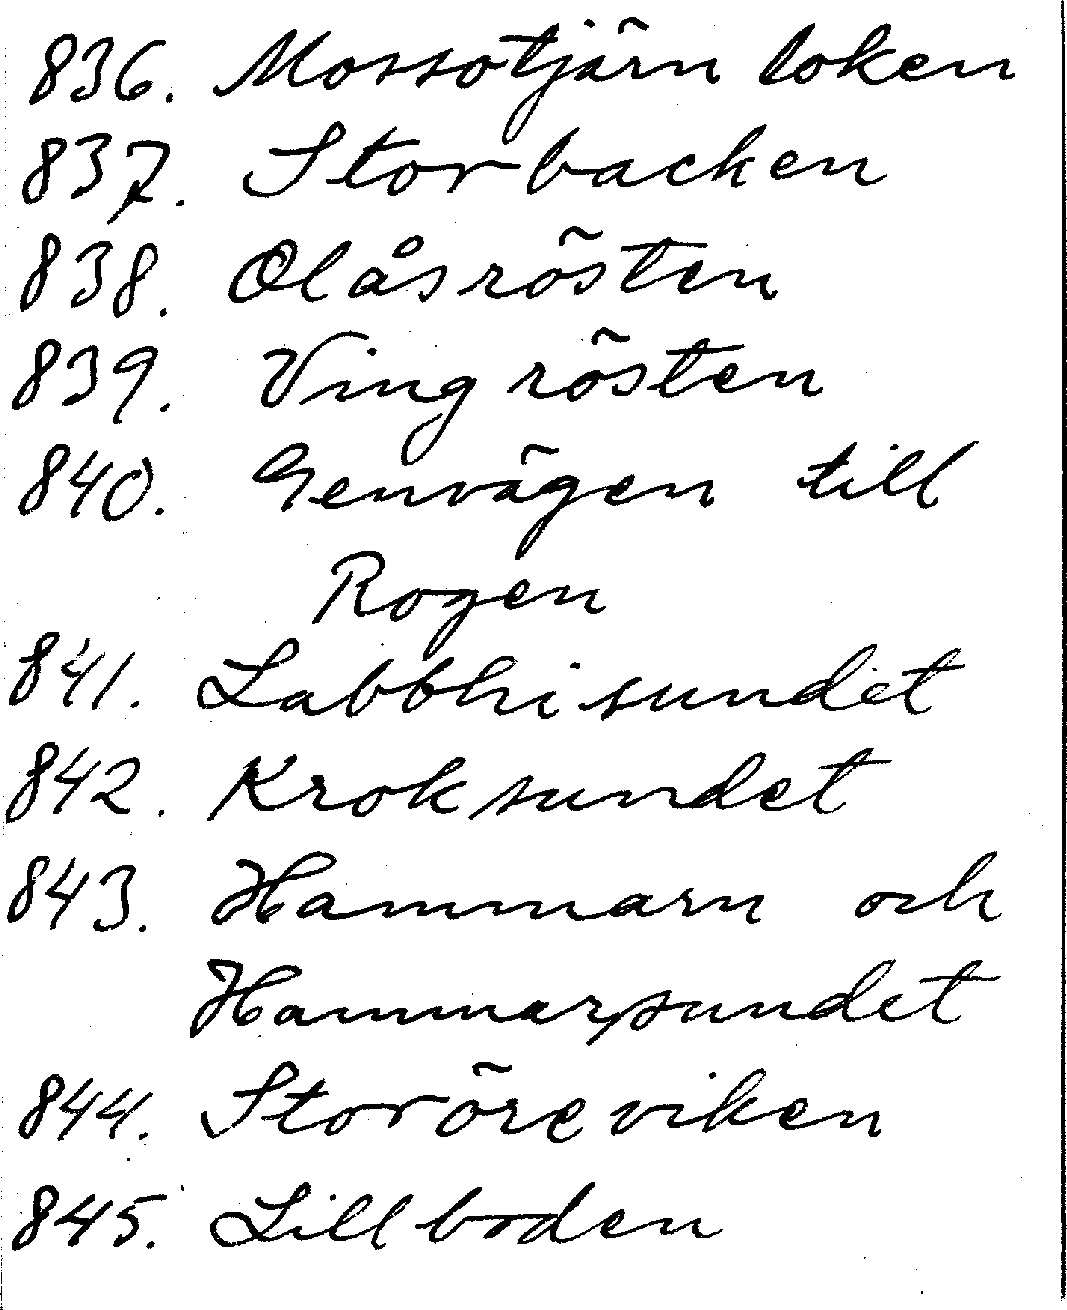 836. Mossotjärn loken
837. Storbacken
838. Olåsrösten
839. Vingrösten
840. Genvägen till
Rogen
841. Labbhisundet
842. Kroksundet
843. Hammarn och
Hammarsundet
844. Storöreviken
845. Lillboden